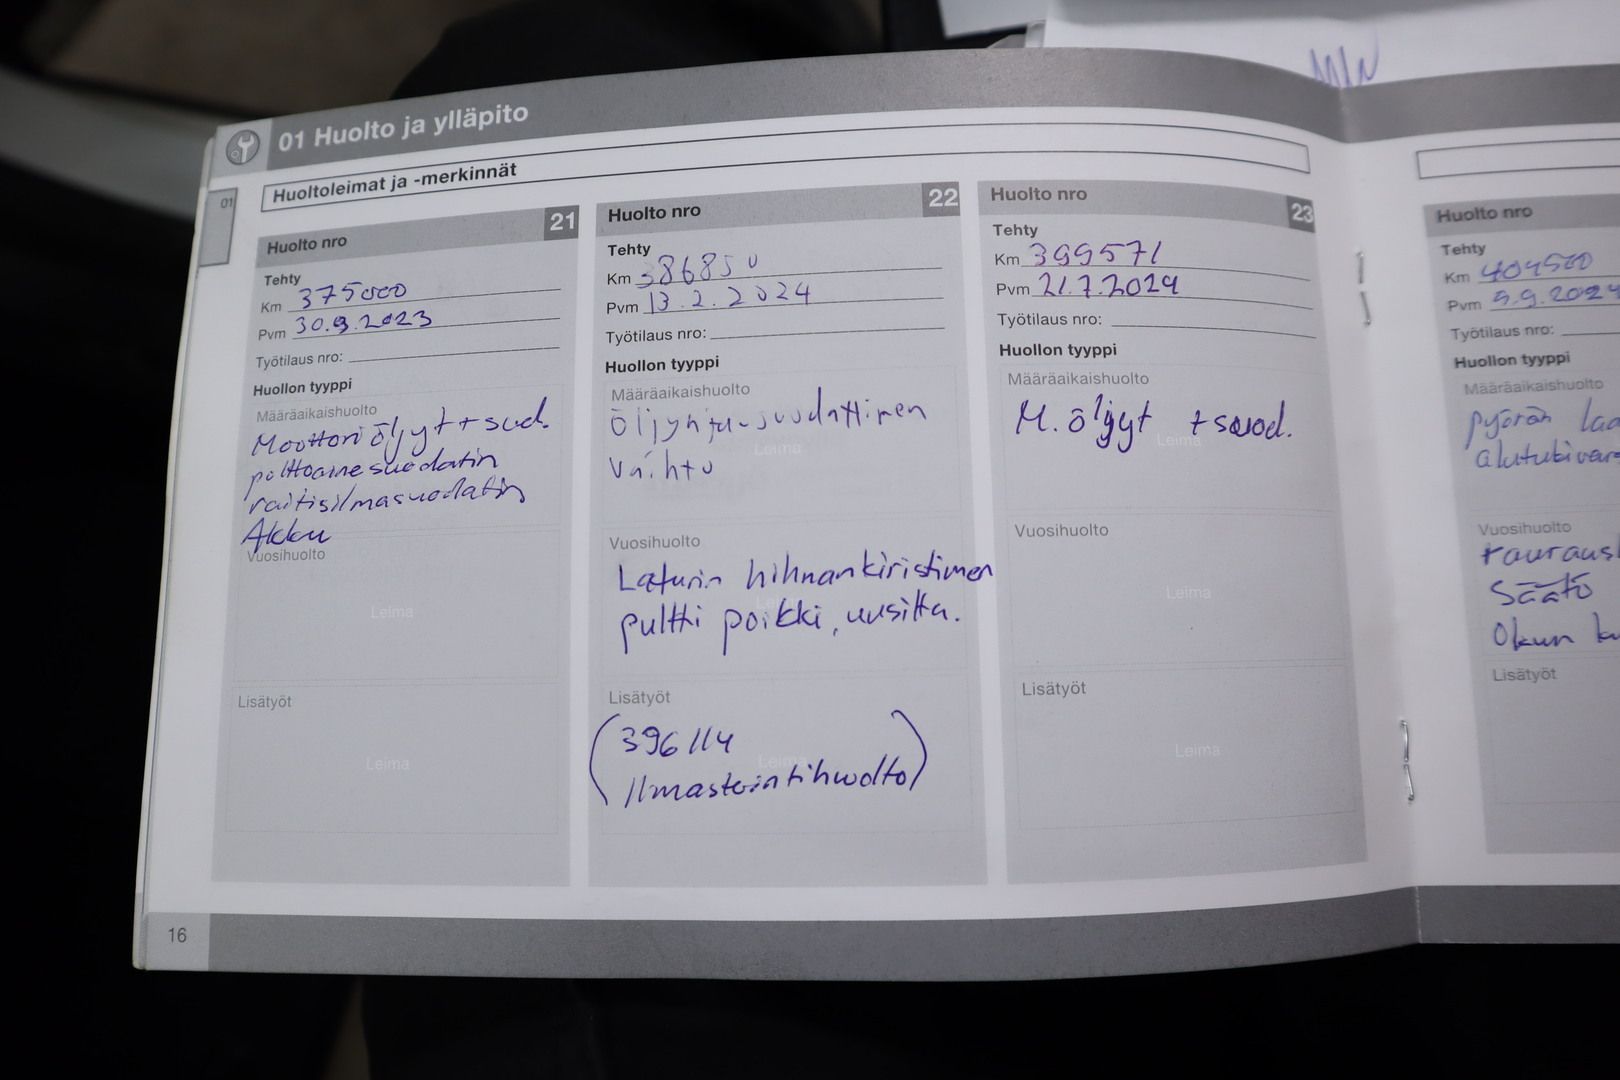 01 Huolto ja ylläpito
Huoltoleimat ja -merkinnät
01
Huolto nro 21
Tehty
Km 375000
Pvm 30.9.2023
Työtilaus nro:
Huollon tyyppi
Määräaikaishuolto
Moottoriöljyt + suod.
polttoainesuodatin
raitisilmasuodatin
Akku
Vuosihuolto
Leima
Lisätyöt
Leima
16
Huolto nro 22
Tehty
Km 386850
Pvm 13.2.2024
Työtilaus nro:
Huollon tyyppi
Määräaikaishuolto
Öljyn ja -suodattimen
Leima
vaihto
Vuosihuolto
Laturin hihnankiristimen
pultti poikki, uusittu.
Lisätyöt
(396114
Ilmastointihuolto)
Huolto nro 23
Tehty
Km 399571
Pvm 21.7.2024
Työtilaus nro:
Huollon tyyppi
Määräaikaishuolto
M. öljyt + suod.
Leima
Vuosihuolto
Leima
Lisätyöt
Leima
Huolto nro
Tehty
Km 404500
Pvm 5.9.2024
Työtilaus nro:
Huollon tyyppi
Määräaikaishuolto
pyörän laa
alutukivars
Vuosihuolto
säätö
Lisätyöt